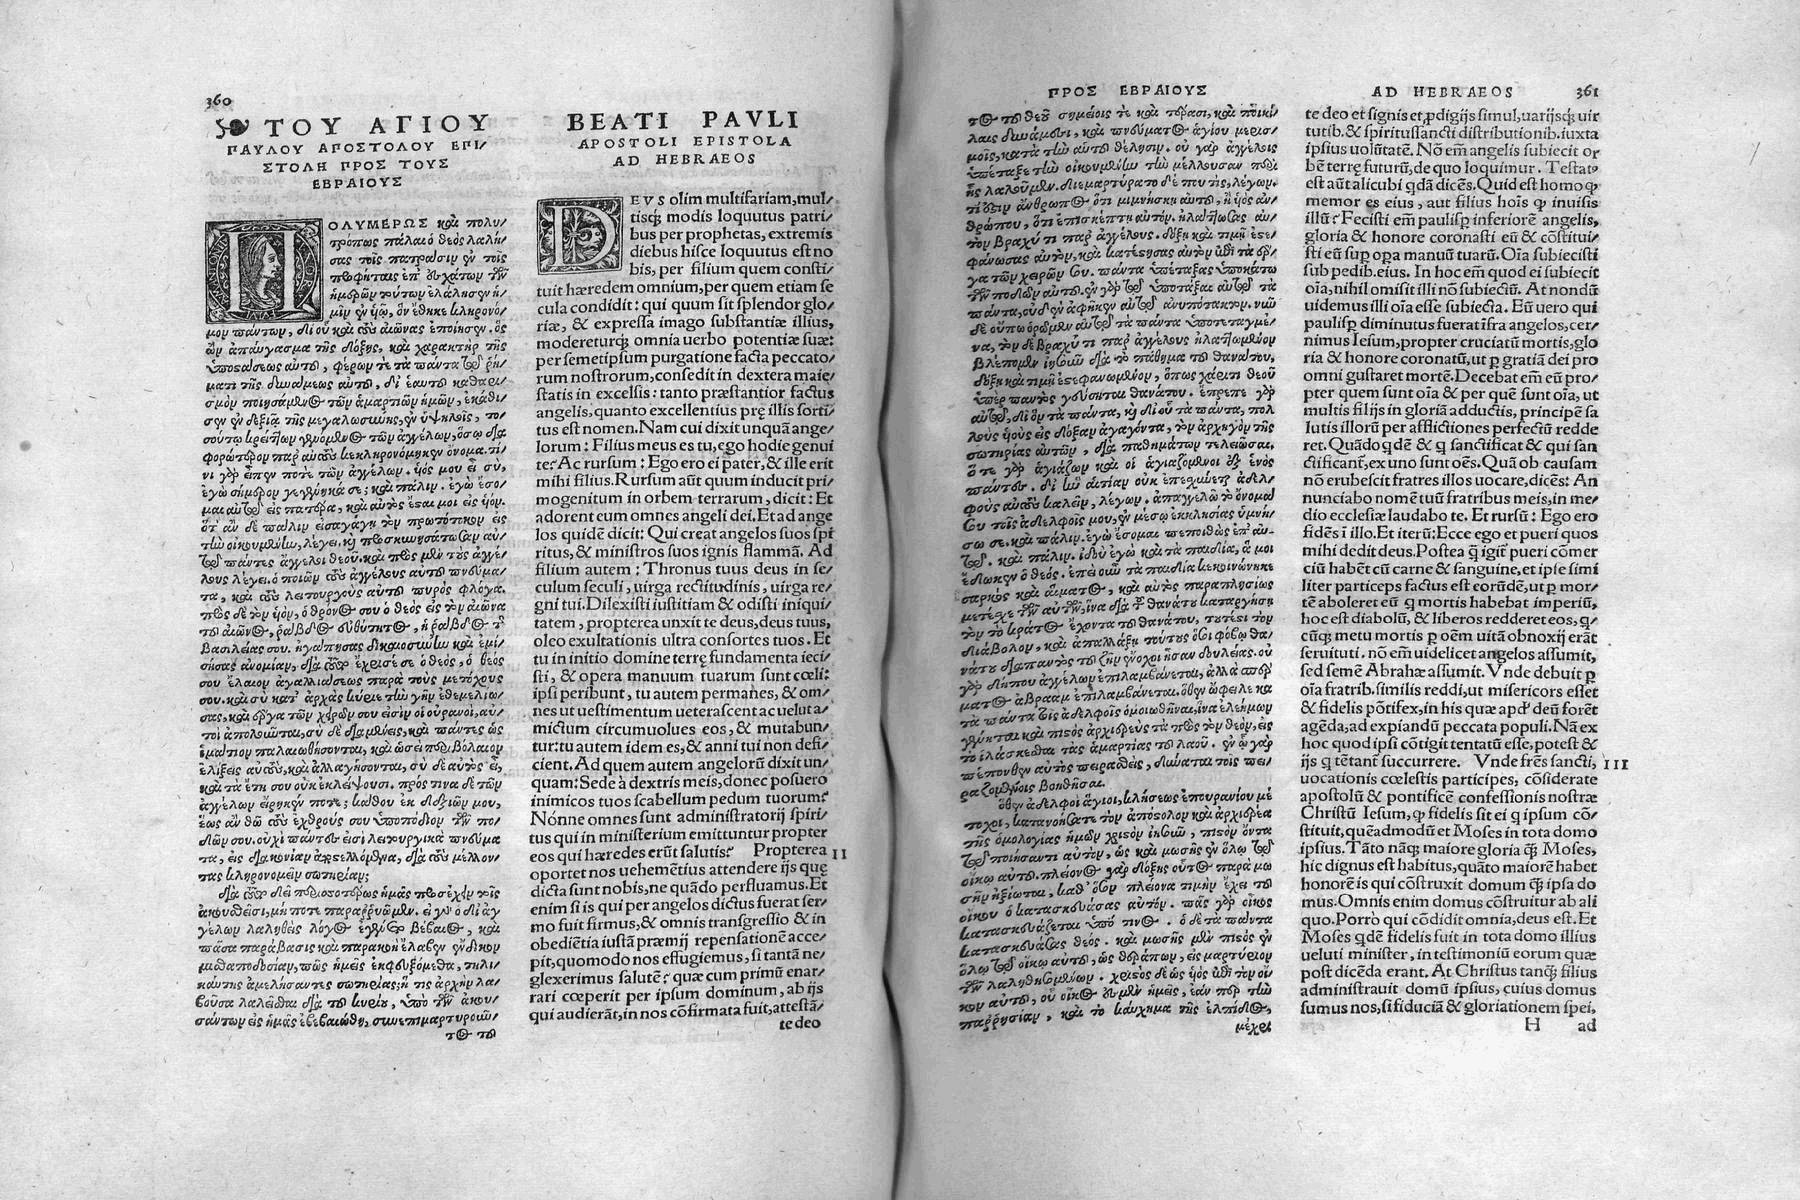 360
ΤΟΥ ΑΓΙΟΥ
ΠΑΥΛΟΥ ΑΠΟΣΤΟΛΟΥ ΕΠΙ/
ΣΤΟΛΗ ΠΡΟΣ ΤΟΥΣ
ΕΒΡΑΙΟΥΣ
ΠΟΛΥΜΕΡΩΣ καὶ πολυ/
τρόπως πάλαι ὁ θεὸς λαλή/
σας τοῖς πατράσιν ἐν τοῖς
προφήταις ἐπ' ἐσχάτων τῶν
ἡμερῶν τούτων ἐλάλησεν ἡ/
μῖν ἐν ἡῷ, ὃν ἔθηκε κληρονό/
μον πάντων, δι οὗ καὶ τοὺς αἰῶνας ἐποίησεν. ὃς
ὢν ἀπαύγασμα τῆς δόξης, καὶ χαρακτὴρ τῆς
ὑποστάσεως αὐτοῦ, φέρων τε τὰ πάντα τῷ ῥή/
ματι τῆς δυνάμεως αὐτοῦ, δι ἑαυτοῦ καθαρι/
σμὸν ποιησάμενος τῶν ἁμαρτιῶν ἡμῶν, ἐκάθι/
σεν ἐν δεξιᾷ τῆς μεγαλωσύνης ἐν ὑψηλοῖς, το/
σούτῳ κρείττων γενόμενος τῶν ἀγγέλων, ὅσῳ δια
φορώτερον παρ αὐτοὺς κεκληρονόμηκεν ὄνομα. τί/
νι γὰρ εἶπέν ποτε τῶν ἀγγέλων. ἡός μου εἶ σύ,
ἐγὼ σήμερον γεγέννηκά σε; καὶ πάλιν. ἐγὼ ἔσο/
μαι αὐτῷ εἰς πατέρα, καὶ αὐτὸς ἔσται μοι εἰς ἡόν.
ὅτ' ἂν δὲ πάλιν εἰσαγάγῃ τὸν πρωτότοκον εἰς
τὴν οἰκουμένην, λέγει. κỳ προσκυνησάτωσαν αὐ/
τῷ πάντες ἄγγελοι θεοῦ. καὶ πρὸς μὲν τοὺς ἀγγέ/
λους λέγει. ὁ ποιῶν τοὺς ἀγγέλους αὐτοῦ πνεύμα/
τα, καὶ τοὺς λειτουργοὺς αὐτοῦ πυρὸς φλόγα.
πρὸς δὲ τὸν ἡόν, ὁ θρόνος σου ὁ θεὸς εἰς τὸν αἰῶνα
τοῦ αἰῶνος, ῥάβδος εὐθύτητος, ἡ ῥάβδος τῆς
βασιλείας σου. ἠγάπησας δικαιοσύνην καὶ ἐμί/
σησας ἀνομίαν, διὰ τοῦτο ἔχρισέ σε ὁ θεὸς, ὁ θεός
σου ἔλαιον ἀγαλλιάσεως παρὰ τοὺς μετόχους
σου. καὶ σὺ κατ' ἀρχὰς κύριε τὴν γῆν ἐθεμελίω/
σας, καὶ ἔργα τῶν χειρῶν σου εἰσὶν οἱ οὐρανοί, αὐ/
τοὶ ἀπολοῦνται, σὺ δὲ διαμένεις, καὶ πάντες ὡς
ἱμάτιον παλαιωθήσονται, καὶ ὡσεὶ περιβόλαιον
ἑλίξεις αὐτοὺς, καὶ ἀλλαγήσονται, σὺ δὲ αὐτὸς εἶ,
καὶ τὰ ἔτη σου οὐκ ἐκλείψουσι. πρός τινα δὲ τῶν
ἀγγέλων εἴρηκέν ποτε; κάθου ἐκ δεξιῶν μου,
ἕως ἂν θῶ τοὺς ἐχθρούς σου ὑποπόδιον τῶν πο/
δῶν σου. οὐχὶ πάντες εἰσὶ λειτουργικὰ πνεύμα
τα, εἰς διακονίαν ἀποστελλόμενα, διὰ τοὺς μέλλον/
τας κληρονομεῖν σωτηρίαν;
διὰ τοῦτο δεῖ περισσοτέρως ἡμᾶς προσέχειν τοῖς
ἀκουσθεῖσι, μή ποτε παραρρυῶμεν. εἰ γὰρ ὁ δι ἀγ
γέλων λαληθεὶς λόγος ἐγένετο βέβαιος, καὶ
πᾶσα παράβασις καὶ παρακοὴ ἔλαβεν ἔνδικον
μισθαποδοσίαν, πῶς ἡμεῖς ἐκφευξόμεθα, τηλι/
καύτης ἀμελήσαντες σωτηρίας; ἥ τις ἀρχὴν λα/
βοῦσα λαλεῖσθαι διὰ τοῦ κυρίου, ὑπὸ τῶν ἀκου/
σάντων εἰς ἡμᾶς ἐβεβαιώθη, συνεπιμαρτυροῦν/
τος τοῦ
BEATI PAVLI
APOSTOLI EPISTOLA
AD HEBRAEOS
DEVS olim multifariam, mul/
tisq; modis loquutus patri/
bus per prophetas, extremis
diebus hisce loquutus est no
bis, per filium quem consti/
tuit hæredem omnium, per quem etiam se
cula condidit: qui quum sit splendor glo/
riæ, & expressa imago substantiæ illius,
modereturq; omnia uerbo potentiæ suæ:
per semetipsum purgatione facta peccato/
rum nostrorum, consedit in dextera maie/
statis in excelsis: tanto præstantior factus
angelis, quanto excellentius prę illis sorti/
tus est nomen. Nam cui dixit unquā ange/
lorum: Filius meus es tu, ego hodie genui
te? Ac rursum: Ego ero ei pater, & ille erit
mihi filius. Rursum aūt quum inducit pri/
mogenitum in orbem terrarum, dicit: Et
adorent eum omnes angeli dei. Et ad ange
los quidē dicit: Qui creat angelos suos spi
ritus, & ministros suos ignis flammā. Ad
filium autem: Thronus tuus deus in se/
culum seculi, uirga rectitudinis, uirga re/
gni tui. Dilexisti iustitiam & odisti iniqui/
tatem, propterea unxit te deus, deus tuus,
oleo exultationis ultra consortes tuos. Et
tu in initio domine terrę fundamenta ieci/
sti, & opera manuum tuarum sunt cœli:
ipsi peribunt, tu autem permanes, & om/
nes ut uestimentum ueterascent ac uelut a/
mictum circumuolues eos, & mutabun/
tur: tu autem idem es, & anni tui non defi/
cient. Ad quem autem angelorū dixit un/
quam: Sede à dextris meis, donec posuero
inimicos tuos scabellum pedum tuorum?
Nónne omnes sunt administratorij spiri/
tus qui in ministerium emittuntur propter
eos qui hæredes erūt salutis? Propterea II
oportet nos uehemētius attendere ijs quę
dicta sunt nobis, ne quādo perfluamus. Et
enim si is qui per angelos dictus fuerat ser/
mo fuit firmus, & omnis transgressio & in
obediētia iustā præmij repensationē acce/
pit, quomodo nos effugiemus, si tantā ne/
glexerimus salutē? quæ cum primū enar/
rari cœperit per ipsum dominum, ab ijs
qui audierāt, in nos cōfirmata fuit, attestā/
te deo
ΠΡΟΣ ΕΒΡΑΙΟΥΣ
τος τοῦ θεοῦ σημείοις τε καὶ τέρασι, καὶ ποικί/
λαις δυνάμεσι, καὶ πνεύματος ἁγίου μερισ/
μοῖς, κατὰ τὴν αὐτοῦ θέλησιν. οὐ γὰρ ἀγγέλοις
ὑπέταξε τὴν οἰκουμένην τὴν μέλλουσαν περὶ
ἧς λαλοῦμεν. διεμαρτύρατο δέ που τις, λέγων.
τί ἐστιν ἄνθρωπος, ὅτι μιμνήσκῃ αὐτοῦ, ἢ ἡὸς ἀν/
θρώπου, ὅτι ἐπισκέπτῃ αὐτόν. ἠλάττωσας αὐ/
τὸν βραχύ τι παρ' ἀγγέλους. δόξῃ καὶ τιμῇ ἐστε/
φάνωσας αὐτὸν, καὶ κατέστησας αὐτὸν ἐπὶ τὰ ἔρ/
γα τῶν χειρῶν σου. πάντα ὑπέταξας ὑποκάτω
τῶν ποδῶν αὐτοῦ. ἐν γὰρ τῷ ὑποτάξαι αὐτῷ τὰ
πάντα, οὐδὲν ἀφῆκεν αὐτῷ ἀνυπότακτον. νῦν
δὲ οὔπω ὁρῶμεν αὐτῷ τὰ πάντα ὑποτεταγμέ/
να, τὸν δὲ βραχύ τι παρ ἀγγέλους ἠλαττωμένον
βλέπομεν ἰησοῦν διὰ τὸ πάθημα τοῦ θανάτου,
δόξῃ καὶ τιμῇ ἐστεφανωμένον, ὅπως χάριτι θεοῦ
ὑπὲρ παντὸς γεύσηται θανάτου. ἔπρεπε γὰρ
αὐτῷ, δι ὃν τὰ πάντα, κỳ δι οὗ τὰ πάντα, πολ
λοὺς ἡοὺς εἰς δόξαν ἀγαγόντα, τὸν ἀρχηγὸν τῆς
σωτηρίας αὐτῶν, διὰ παθημάτων τελειῶσαι.
ὅ τε γὰρ ἁγιάζων καὶ οἱ ἁγιαζόμενοι ἐξ ἑνὸς
πάντες. δι ἣν αἰτίαν οὐκ ἐπαισχύνεται ἀδελ/
φοὺς αὐτοὺς καλεῖν, λέγων. ἀπαγγελῶ τὸ ὄνομά
σου τοῖς ἀδελφοῖς μου, ἐν μέσῳ ἐκκλησίας ὑμνή/
σω σε. καὶ πάλιν. ἐγὼ ἔσομαι πεποιθὼς ἐπ' αὐ/
τῷ. καὶ πάλιν. ἰδοὺ ἐγὼ καὶ τὰ παιδία, ἅ μοι
ἔδωκεν ὁ θεός. ἐπεὶ οὖν τὰ παιδία κεκοινώνηκε
σαρκὸς καὶ αἵματος, καὶ αὐτὸς παραπλησίως
μετέχε τῶν αὐτῶν, ἵνα διὰ τοῦ θανάτου καταργήσῃ
τὸν τὸ κράτος ἔχοντα τοῦ θανάτου, τουτέστι τὸν
διάβολον, καὶ ἀπαλλάξῃ τούτους ὅσοι φόβῳ θα/
νάτου διαπαντὸς τοῦ ζῇν ἔνοχοι ἦσαν δουλείας. οὐ
γὰρ δήπου ἀγγέλων ἐπιλαμβάνεται, ἀλλὰ σπέρ
ματος ἀβραὰμ ἐπιλαμβάνεται. ὅθεν ὤφειλε κα
τὰ πάντα τοῖς ἀδελφοῖς ὁμοιωθῆναι, ἵνα ἐλεήμων
γένηται καὶ πιστὸς ἀρχιερεὺς τὰ πρὸς τὸν θεόν, εἰς
τὸ ἱλάσκεσθαι τὰς ἁμαρτίας τοῦ λαοῦ. ἐν ᾧ γὰρ
πέπονθεν αὐτὸς πειρασθείς, δύναται τοῖς πει/
ραζομένοις βοηθῆσαι.
ὅθεν ἀδελφοὶ ἅγιοι, κλήσεως ἐπουρανίου μέ
τοχοι, κατανοήσατε τὸν ἀπόστολον καὶ ἀρχιερέα
τῆς ὁμολογίας ἡμῶν χριστὸν ἰησοῦν, πιστὸν ὄντα
τῷ ποιήσαντι αὐτὸν, ὡς καὶ μωσῆς ἐν ὅλῳ τῷ
οἴκῳ αὐτοῦ. πλείονος γὰρ δόξης οὗτος παρὰ μω
σῆν ἠξίωται, καθ' ὅσον πλείονα τιμὴν ἔχει τοῦ
οἴκου ὁ κατασκευάσας αὐτόν. πᾶς γὰρ οἶκος
κατασκευάζεται ὑπό τινος. ὁ δὲ τὰ πάντα
κατασκευάσας θεός. καὶ μωσῆς μὲν πιστὸς ἐν
ὅλῳ τῷ οἴκῳ αὐτοῦ, ὡς θεράπων, εἰς μαρτύριον
τῶν λαληθησομένων. χριστὸς δὲ ὡς ἡὸς ἐπὶ τὸν οἶ/
κον αὐτοῦ, οὗ οἶκος ἐσμὲν ἡμεῖς, ἐάν περ τὴν
παρρησίαν, καὶ τὸ καύχημα τῆς ἐλπίδος,
μέχρι
AD HEBRAEOS 361
te deo et signis et prodigijs simul, uarijsq; uir
tutib. & spiritus sancti distributionib. iuxta
ipsius volūtatē. Nō em̄ angelis subiecit or
bē terrę futurū, de quo loquimur. Testatꝰ
est aūt alicubi qdā dicēs. Quid est homo ꝙ
memor es eius, aut filius hoīs ꝙ inuisis
illū? Fecisti em̄ paulisꝑ inferiorē angelis,
gloria & honore coronasti eū & cōstitui/
sti eū suꝑ oꝑa manuū tuarū. Oīa subiecisti
sub pedib. eius. In hoc em̄ quod ei subiecit
oīa, nihil omisit illi nō subiectū. At nondū
uidemus illi oīa esse subiecta. Eū uero qui
paulisꝑ diminutus fuerat īfra angelos, cer/
nimus Iesum, propter cruciatū mortis, glo
ria & honore coronatū, ut ꝑ gratiā dei pro
omni gustaret mortē. Decebat em̄ eū pro/
pter quem sunt oīa & per quē sunt oīa, ut
multis filijs in gloriā adductis, principē sa
lutis illorū per afflictiones perfectū redde
ret. Quādoqdē & q sanctificat & qui san
ctificant̄, ex uno sunt oēs. Quā ob causam
nō erubescit fratres illos uocare, dicēs: An
nunciabo nomē tuū fratribus meis, in me/
dio ecclesiæ laudabo te. Et rursū: Ego ero
fidēs ī illo. Et iterū: Ecce ego et pueri quos
mihi dedit deus. Postea q̄ igit̄ pueri cōmer
ciū habēt cū carne & sanguine, et ipse simi
liter particeps factus est eorūdē, ut ꝑ mor/
tē aboleret eū q mortis habebat imperiū,
hoc est diabolū, & liberos redderet eos, q/
cūq; metu mortis ꝑ oēm uitā obnoxij erāt
seruituti. nō em̄ uidelicet angelos assumit,
sed semē Abrahæ assumit. Vnde debuit ꝑ
oīa fratrib. similis reddi, ut misericors esset
& fidelis pōtifex, in his quæ apd' deū forēt
agēda, ad expiandū peccata populi. Nā ex
hoc quod ipsi cōtigit tentatū esse, potest &
ijs q tētant̄ succurrere. Vnde frēs sancti, III
uocationis cœlestis participes, cōsiderate
apostolū & pontificē confessionis nostræ
Christū Iesum, ꝙ fidelis sit ei q ipsum cō/
stituit, quēadmodū et Moses in tota domo
ipsius. Tāto nāq; maiore gloria q̄ Moses,
hic dignus est habitus, quāto maiorē habet
honorē is qui cōstruxit domum q̄ ipsa do
mus. Omnis enim domus cōstruitur ab ali
quo. Porrò qui cōdidit omnia, deus est. Et
Moses qdē fidelis fuit in tota domo illius
ueluti minister, in testimoniū eorum quæ
post dicēda erant. At Christus tanq̄ filius
administrauit domū ipsius, cuius domus
sumus nos, si fiduciā & gloriationem spei,
H ad